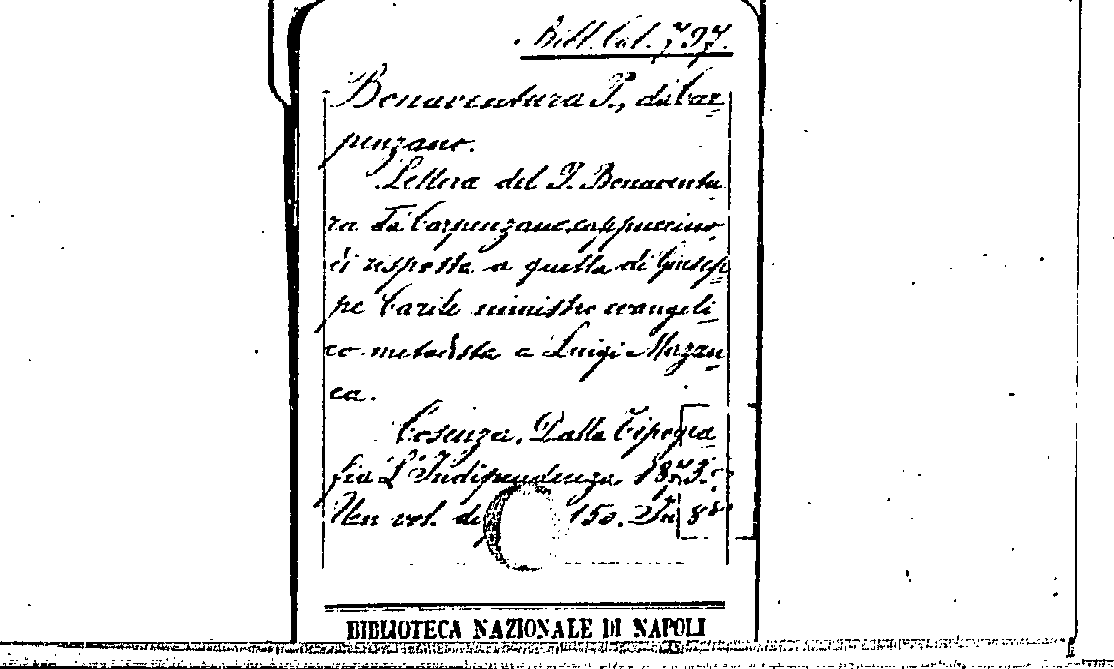 Bibl. Cal. 797.
Bonaventura P., da Car-
penzano.
Lettera del P. Bonaventu-
ra da Carpenzano cappuccino
di risposta a quella di Giusep-
pe Carile ministro evangeli-
co metodista a Luigi Mazan-
ca.
Cosenza. Dalla Tipogra
fia L'Indipendenza. 1873.
Un vol. di 150. In 8º
BIBLIOTECA NAZIONALE DI NAPOLI